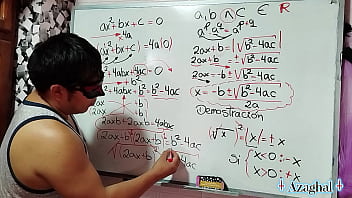 ax²+bx+C=0
.4a
(ax²+bx+C)=4a(0)
4abx+4ac=0
4abx+b²=b²-4ac
2ax
b
2axb+2axb=4abx
(2ax+b)(2ax+b)=b²-4ac
√(2ax+b)²
4ac
a,b ∧ C ∈ R
aᵖ.a^q=a^(p+q)
2ax+b=|√b²-4ac|
2ax+b=±√b²-4ac
2ax=-b±√b²-4ac
x=-b±√b²-4ac
2a
Demostración
(√x)²=|x|=±x
Si {x<0:-x
x>0:+x
Azaghal